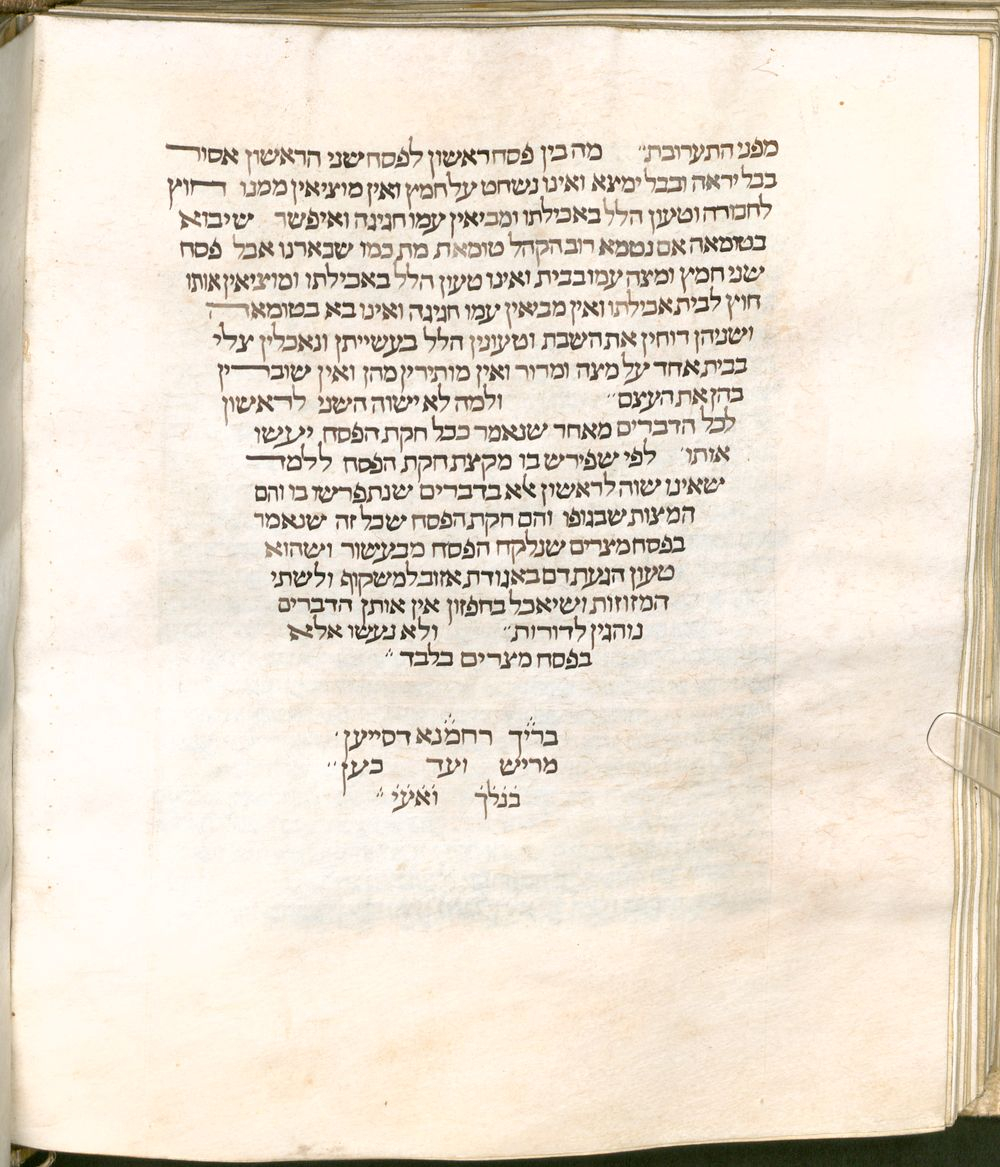 מפני התערובת״ מה בין פסח ראשון לפסח שני הראשון אסור
בבל יראה ובבל ימצא ואינו נשחט על חמץ ואין מוציאין ממנו חוץ
לחבורה וטעון הלל באכילתו ומביאין עמו חגיגה ואיפשר שיבוא
בטומאה אם נטמא רוב הקהל טומאת מת כמו שבארנו אבל פסח
שני חמץ ומצה עמו בבית ואינו טעון הלל באכילתו ומוציאין אותו
חוץ לבית אכילתו ואין מביאין עמו חגיגה ואינו בא בטומאה
ושניהן דוחין את השבת וטעונין הלל בעשייתן ונאכלין צלי
בבית אחד על מצה ומרור ואין מותירין מהן ואין שוברין
בהן את העצם״ ולמה לא ישוה השני לראשון
לכל הדברים מאחר שנאמר ככל חקת הפסח יעשו
אותו׳ לפי שפירש בו מקצת חקת הפסח ללמד
שאינו שוה לראשון אלא בדברים שנתפרשו בו והם
המצות שבגופו והם חקת הפסח שכל זה שנאמר
בפסח מצרים שנלקח הפסח מבעשור ושהוא
טעון הגעת דם באגודת אזוב למשקוף ולשתי
המזוזות ושיאכל בחפזון אין אותן הדברים
נוהגין לדורות״ ולא נעשו אלא
בפסח מצרים בלבד״
בריך רחמנא דסייען׳
מריש ועד כען״
בנלך ואעי״